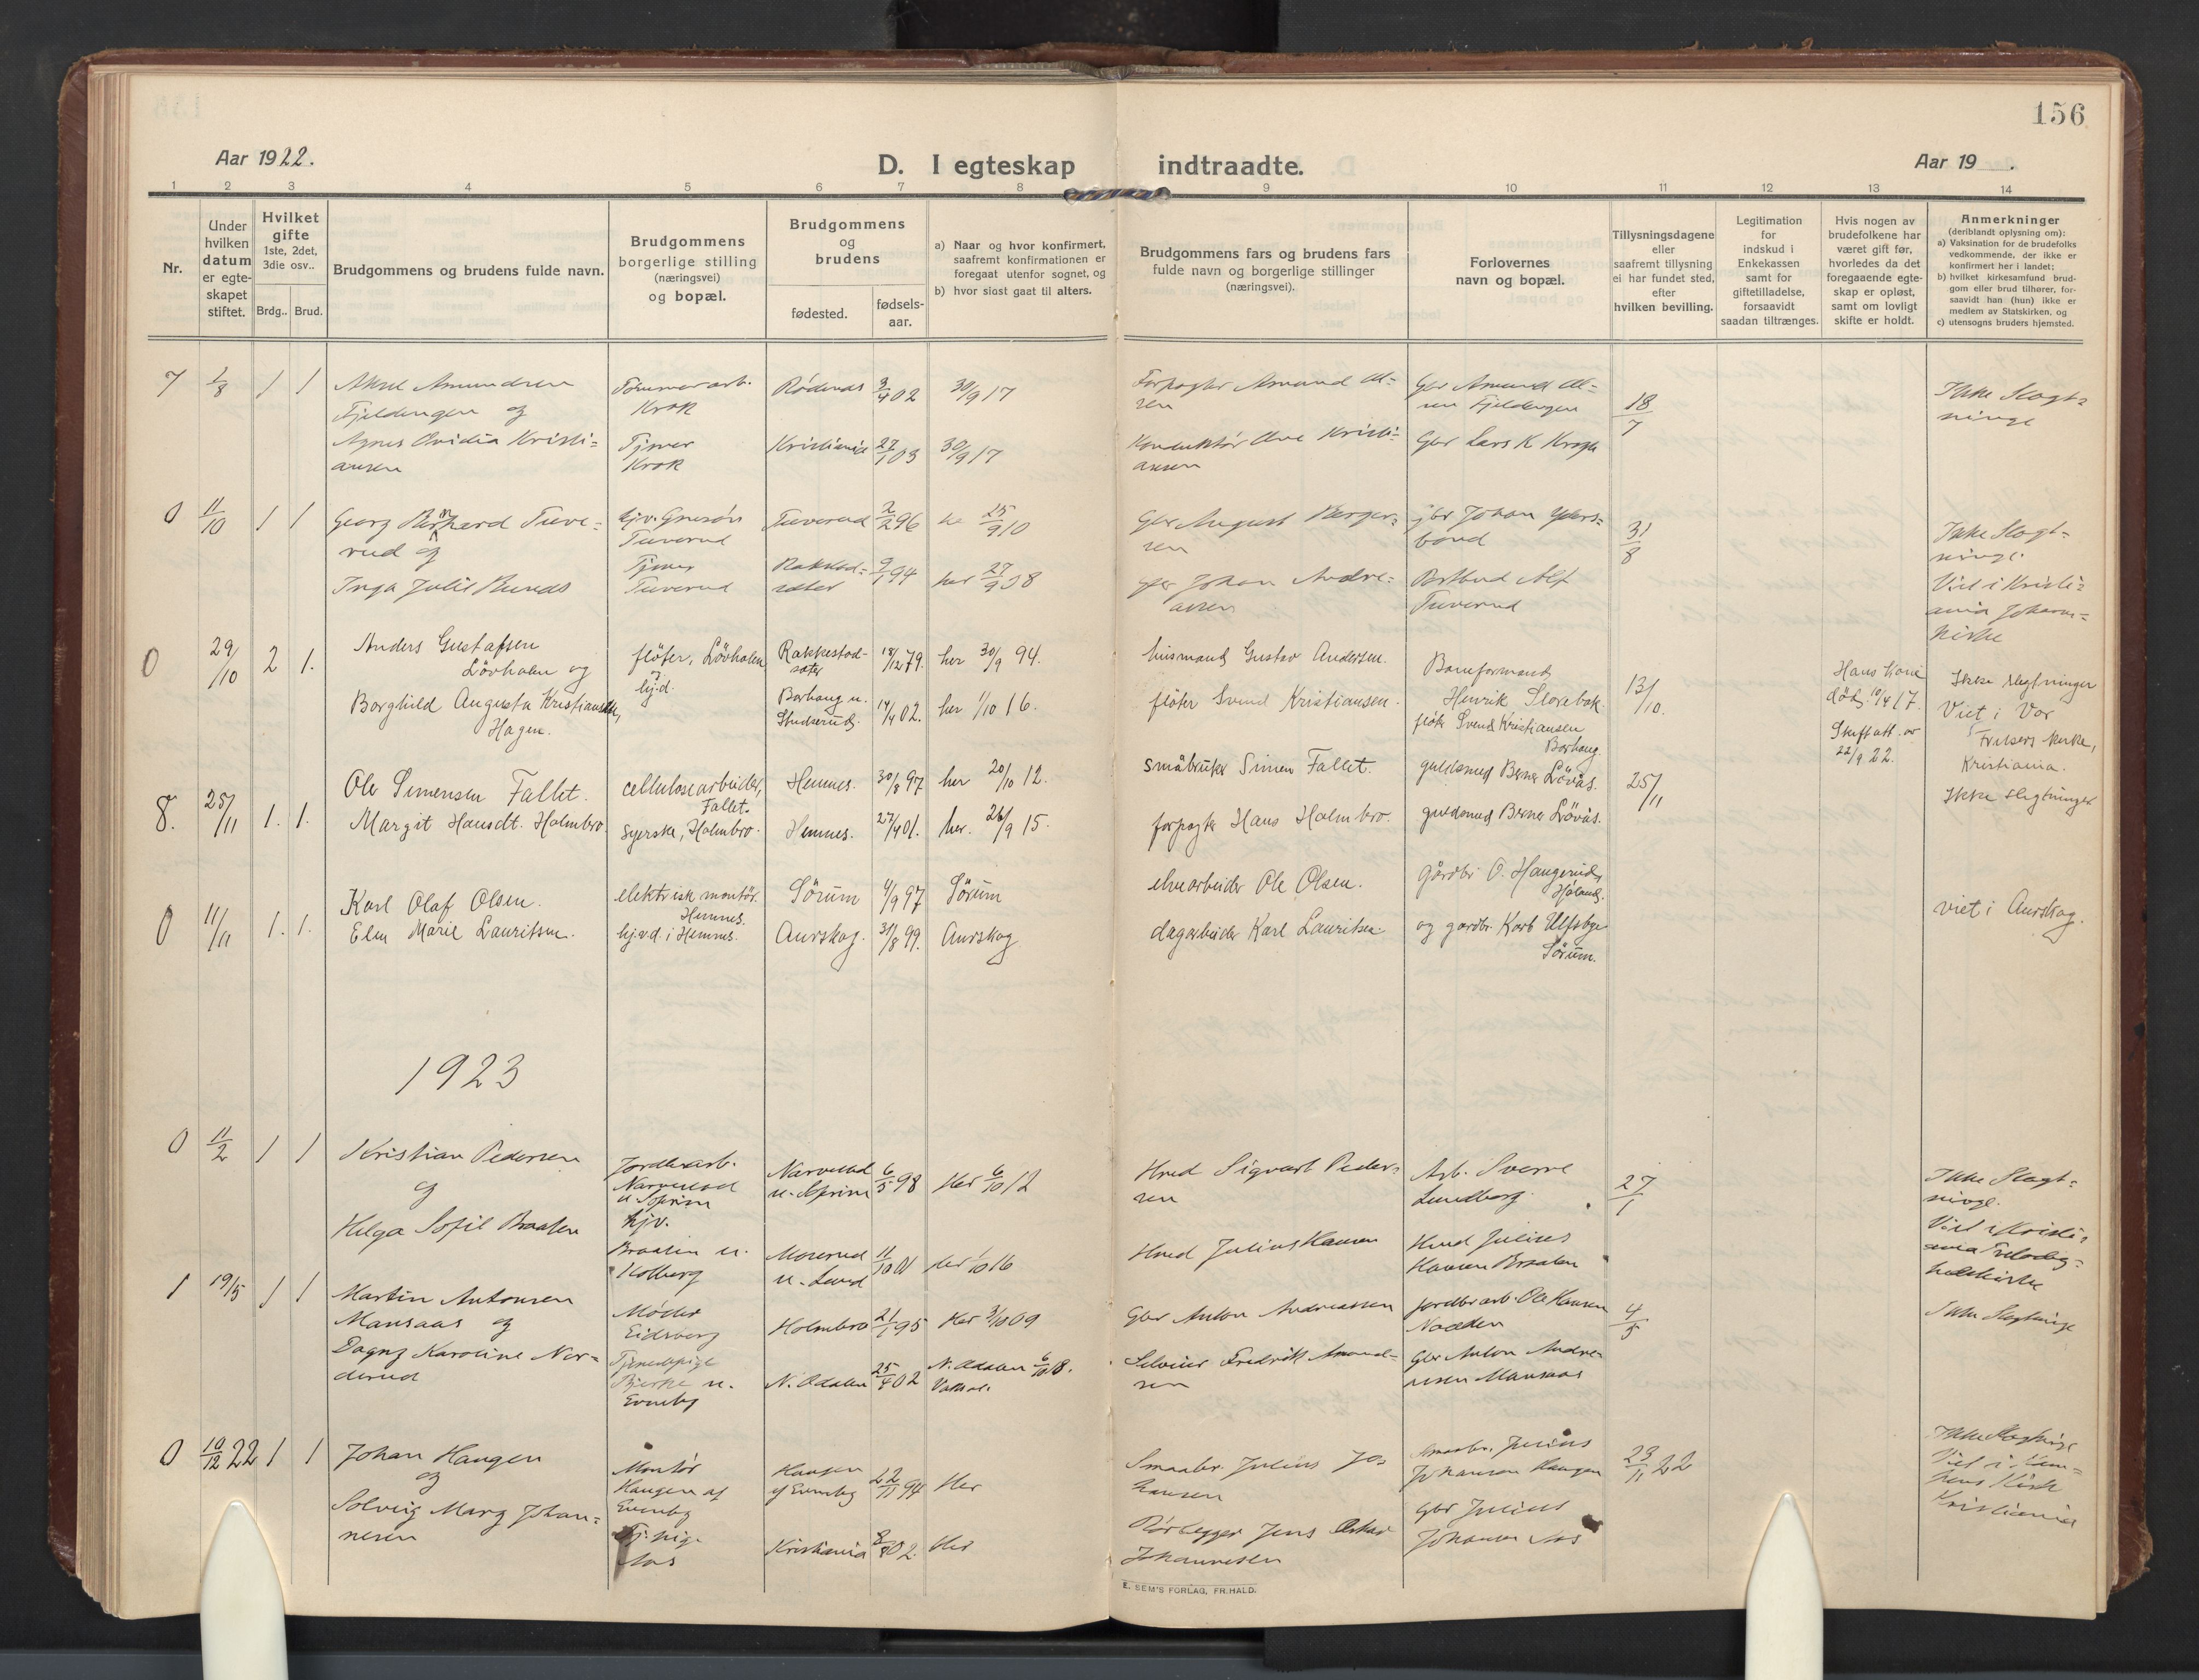 156
Aar 1922.
D. I egteskap indtraadte.
Aar 19 .
1 2 3 4 5 6 7 8 9 10 11 12 13 14
Nr.
Under
hvilken
datum
er egte-
skapet
stiftet.
Hvilket
gifte
1ste, 2det,
3die osv..
Brdg.. Brud.
Brudgommens og brudens fulde navn.
Brudgommens
borgerlige stilling
(næringsvei)
og bopæl.
Brudgommens
og
brudens
fødested.
fødsels-
aar.
a) Naar og hvor konfirmert,
saafremt konfirmationen er
foregaat utenfor sognet, og
b) hvor sidst gaat til alters.
Brudgommens fars og brudens fars
fulde navn og borgerlige stillinger
(næringsvei).
Forlovernes
navn og bopæl.
Tillysningsdagene
eller
saafremt tillysning
ei har fundet sted,
efter
hvilken bevilling.
Legitimation
for
indskud i
Enkekassen
samt for
giftetilladelse,
forsaavidt
saadan tiltrænges.
Hvis nogen av
brudefolkene har
været gift før,
hvorledes da det
foregaaende egte-
skap er opløst,
samt om lovligt
skifte er holdt.
Anmerkninger
(deriblandt oplysning om):
a) Vaksination for de brudefolks
vedkommende, der ikke er
konfirmert her i landet;
b) hvilket kirkesamfund brud-
gom eller brud tilhører, for-
saavidt han (hun) ikke er
medlem av Statskirken, og
c) utensogns bruders hjemsted.
7 1/8 1 1 Aksel Amundsen
Fjeldengen og
Agnes Ovidia Kristi-
ansen
Tømmerarb.
Krok
Tjener
Krok
Rødenes 3/4 02 30/9 17
Kristiania 27/1 03 30/9 17
Forpagter Amund Ol-
sen
Konduktør Ole Kristi-
ansen
Gbr Amund Ol-
sen Fjeldengen
Gbr Lars K Krogh
18/7
Ikke Slægt-
ninge
0 11/10 1 1 Georg Bernhard Tuve-
rud og
Inga Julie Bunes
Tuverud
Tjener
Tuverud
Tuverud 2/2 96 25/9 10
9/1 94 her 27/9 08
Gbr August Berger-
sen
Gbr Johan Andre-
asen
gbr Johan
Alf
Tuverud
31/8
Ikke Slægt-
ninge.
Viet i Kristi-
ania Johann-
kirke
0 29/10 2 1. Anders Gustafsen
Lövholen og
Borghild Augusta Kristiansen,
Hagen.
fløter, Lövholen
hj.d.
Rakkestad-
sæter 18/12 79. her 30/9 94.
Borhaug u.
Studserud. 14/4 02. her 1/10 16.
husmand Gustav Andersen.
fløter Svend Kristiansen.
Baneformand
Henrik Storebak.
fløter Svend Kristiansen
Borhaug.
13/10.
Hans Kone
død 10/4 17.
Skifteatt. av
22/9 22.
Ikke slegtninger
Viet i Vor
Frelsers kirke,
Kristiania.
8. 25/11 1. 1. Ole Simensen Fallet.
Margit Hansdt. Holmbro
cellulosearbeider,
Fallet.
syerske, Holmbro.
Hemnes. 30/8 97 her 20/10 12.
Hemnes. 27/4 01. her. 26/9 15.
småbruker Simen Fallet.
forpagter Hans Holmbro.
guldsmed Berner Lövås.
guldsmed Berner Lövås.
25/11
Ikke slegtninger
0 11/11 1. 1. Karl Olaf Olsen.
Elen Marie Lauritsen.
elektrisk montör.
Hemnes.
hj.v.d. i Hemnes.
Sörum 4/9 97 Sörum
Aurskog. 31/8 99. Aurskog
elvearbeider Ole Olsen.
dagarbeider Karl Lauritsen.
gårdbr O. Haugerud,
Høland.
og gardbr. Karl Ulfsbye
Sörum.
viet i Aurskog.
1923
0 11/2 1 1 Kristian Pedersen
og
Helga Sofie Braaten
Jordbrarb.
Narvestad
u Soprim
hjv.
Braaten u.
Kolberg
Narvestad
u. Soprim 6/5 98 Her 6/10 12
Morerud
u. Lund 11/10 01 her 1/10 16
Hmd Sigvart Peder-
sen
Hmd Julius Hansen
Arb. Sverre
Lundborg.
Hmd Julius
Hansen Braaten
27/1
Ikke Slægt-
ninge.
Viet i Kristi-
ania Trefoldig-
hedskirke
1 19/5 1 1 Martin Antonsen
Mansaas og
Dagny Karoline Nor-
derud
Møller
Eidsberg
Tjenestepige
Bjerke u.
Evenby
Holmbro 21/1 95 Her 3/10 09
N. Odalen 25/4 02 N. Odalen 6/10 18.
Gbr Anton Andreassen
Fredrik Amund-
sen
Jordbrarb. Ole Hansen
Naadden
Gbr Anton Andre-
assen Mansaas
4/5
Ikke Slægtninge
0 10/12 22 1 1 Johan Haugen
og
Solveig Marg Johan-
nesen
Montør
Haugen af
Evenby
Tj. pige
Aas
Haugen
af Evenby 22/11 94 Her
Kristiania 8/8 02. Her
Smaabr. Julius Jo-
hansen
Rørlegger Jens Oskar
Johannesen
Smaabr. Julius
Johansen Haugen
Gbr Julius
Johansen Aas
23/11 22
Ikke Slægtninge
Viet i
Kirke
Kristiania
E. SEM'S FORLAG, FR.HALD.